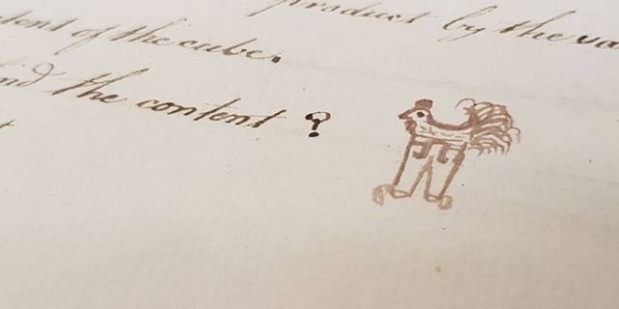 product by the
of the cube.
the content ?